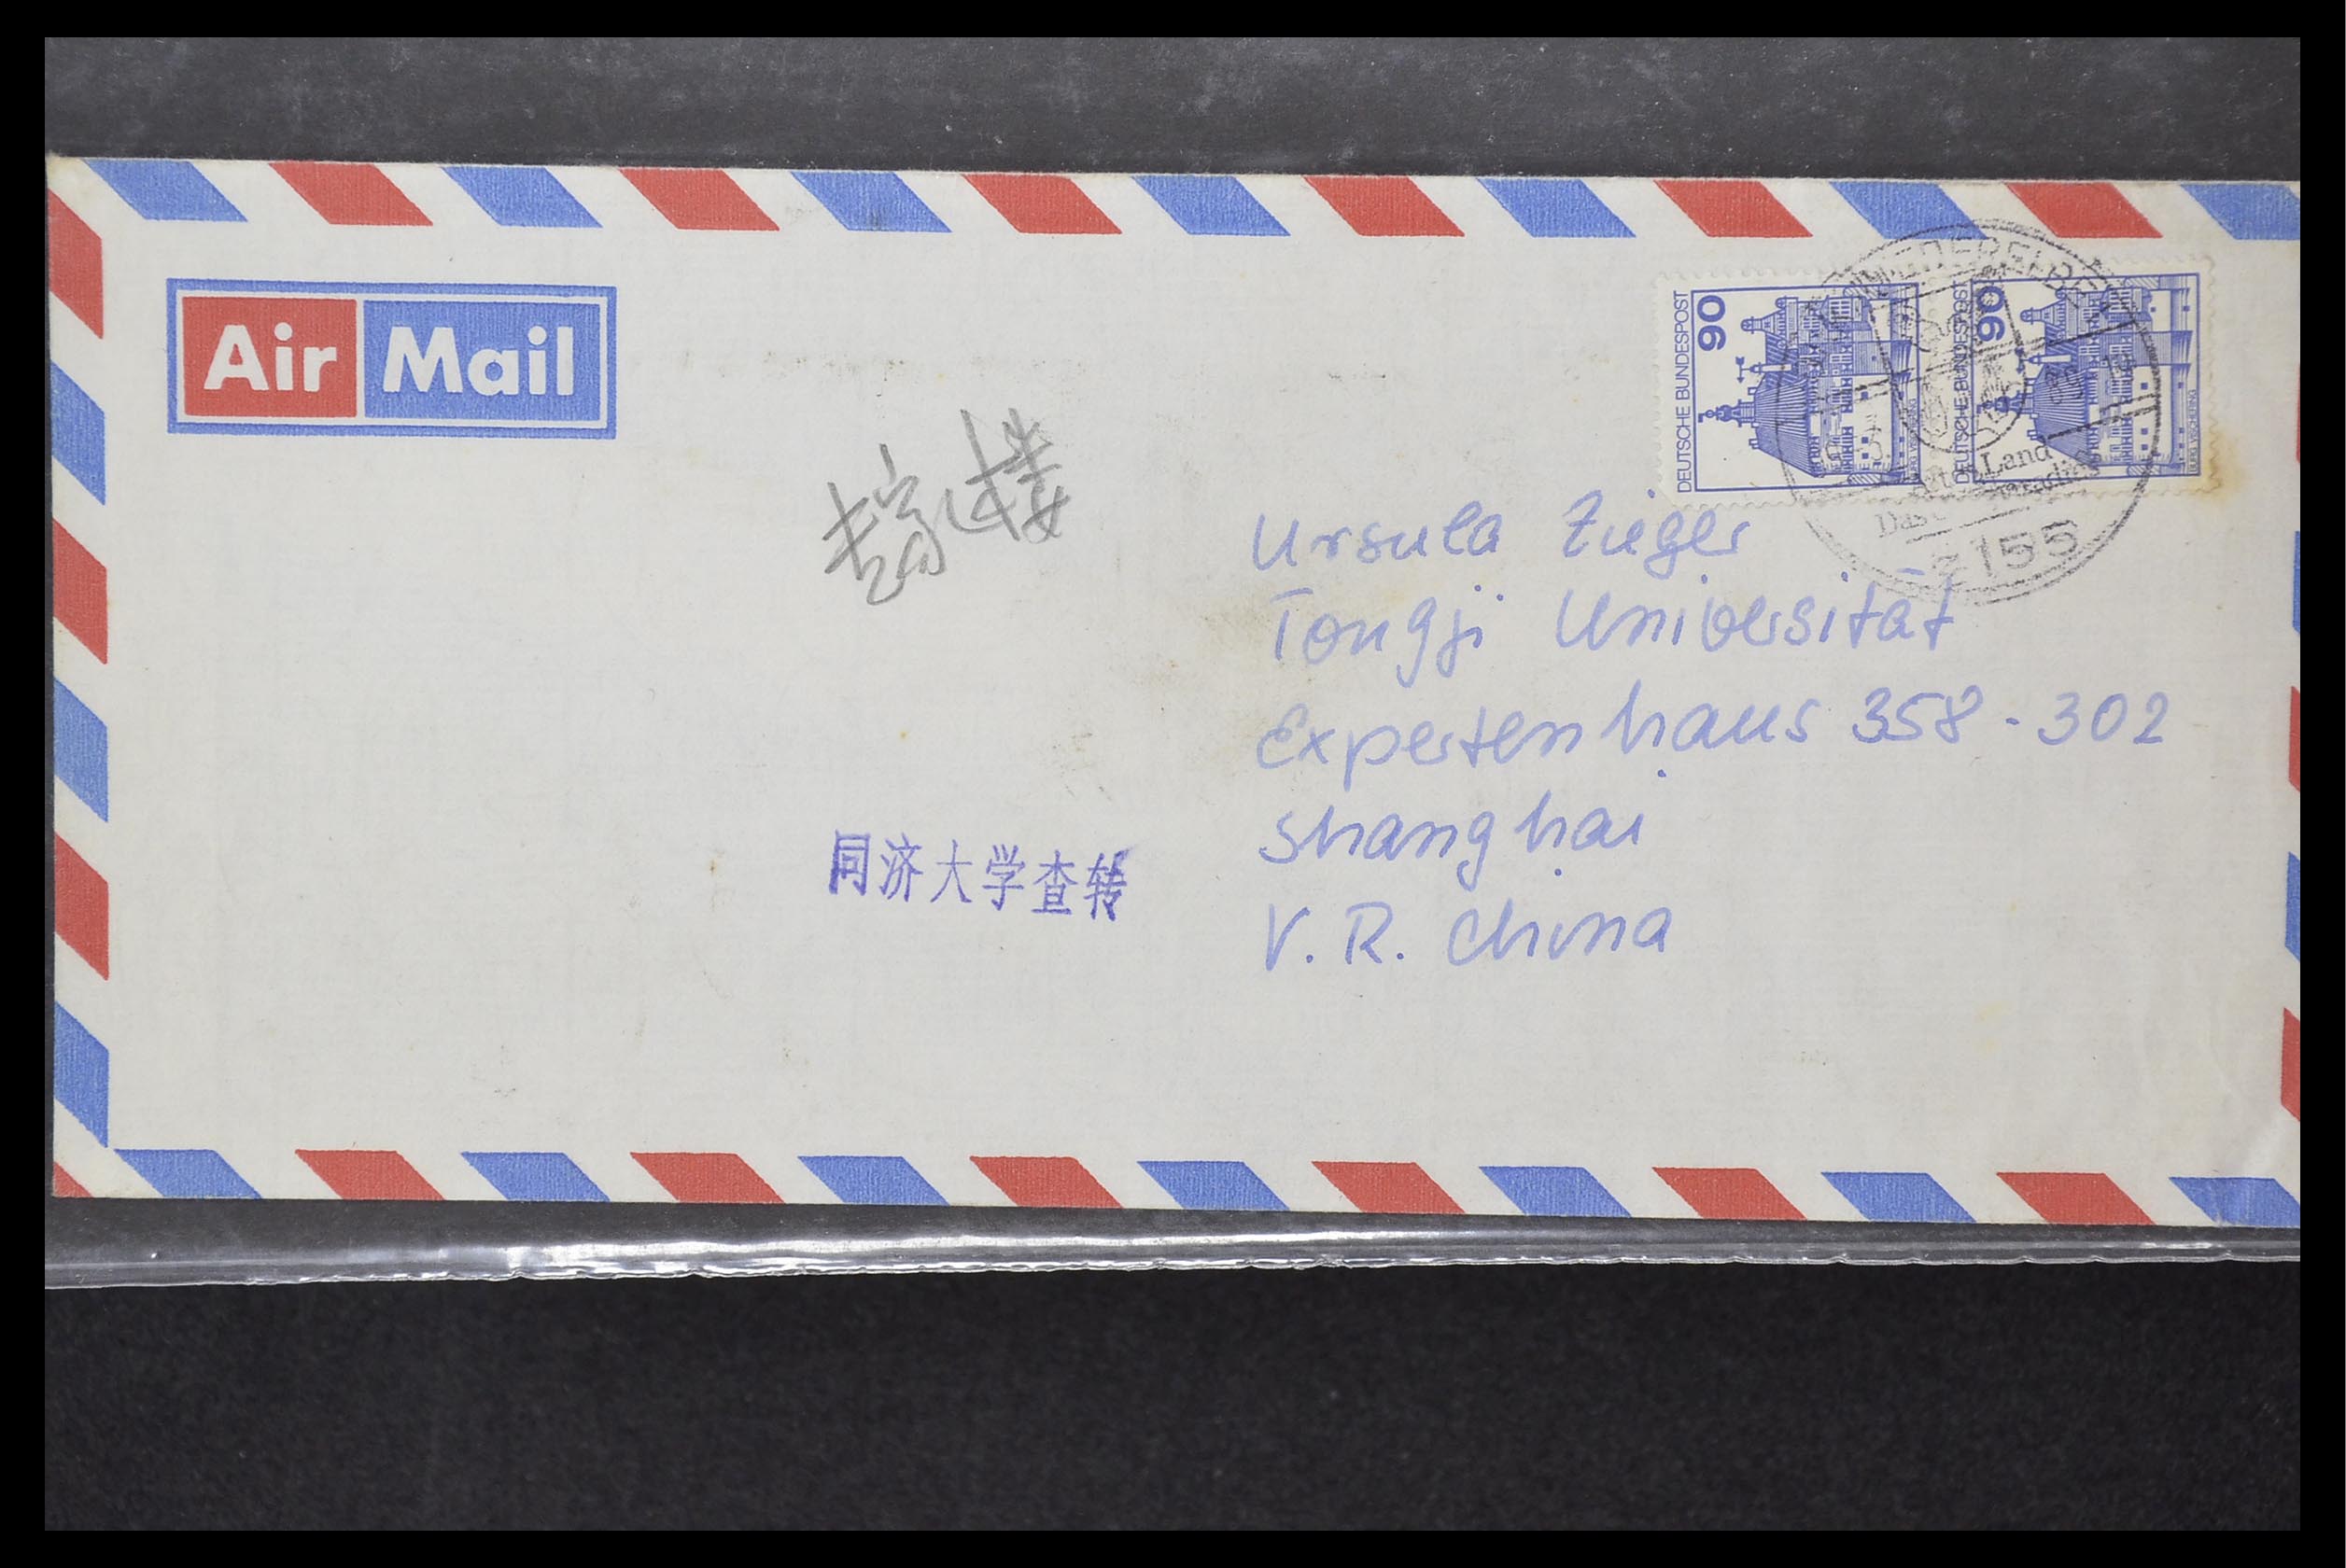 Air Mail
90
DEUTSCHE BUNDESPOST
90
DEUTSCHE BUNDESPOST
BURG VISCHERING
Land
2155
专家楼
Ursula Zieger
Tongji Universität
Expertenhaus 358-302
Shanghai
V. R. China
同济大学查转